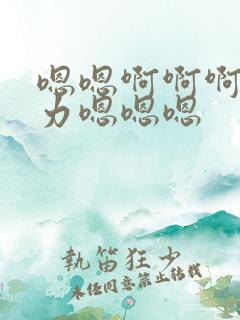 嗯嗯啊啊啊
力嗯嗯嗯
執笛狂少
未经同意禁止转载